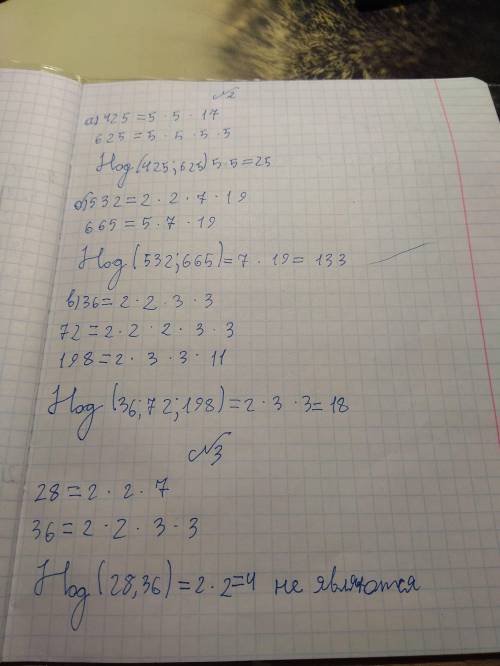 №2
а) 425 = 5 · 5 · 17
625 = 5 · 5 · 5 · 5
Нод (425; 625) 5·5=25
б) 532 = 2 · 2 · 7 · 19
665 = 5 · 7 · 19
Нод (532; 665) = 7 · 19 = 133
в) 36 = 2 · 2 · 3 · 3
72 = 2 · 2 · 2 · 3 · 3
198 = 2 · 3 · 3 · 11
Нод (36; 72; 198) = 2 · 3 · 3 = 18
№3
28 = 2 · 2 · 7
36 = 2 · 2 · 3 · 3
Нод (28,36) = 2 · 2 = 4 не являются